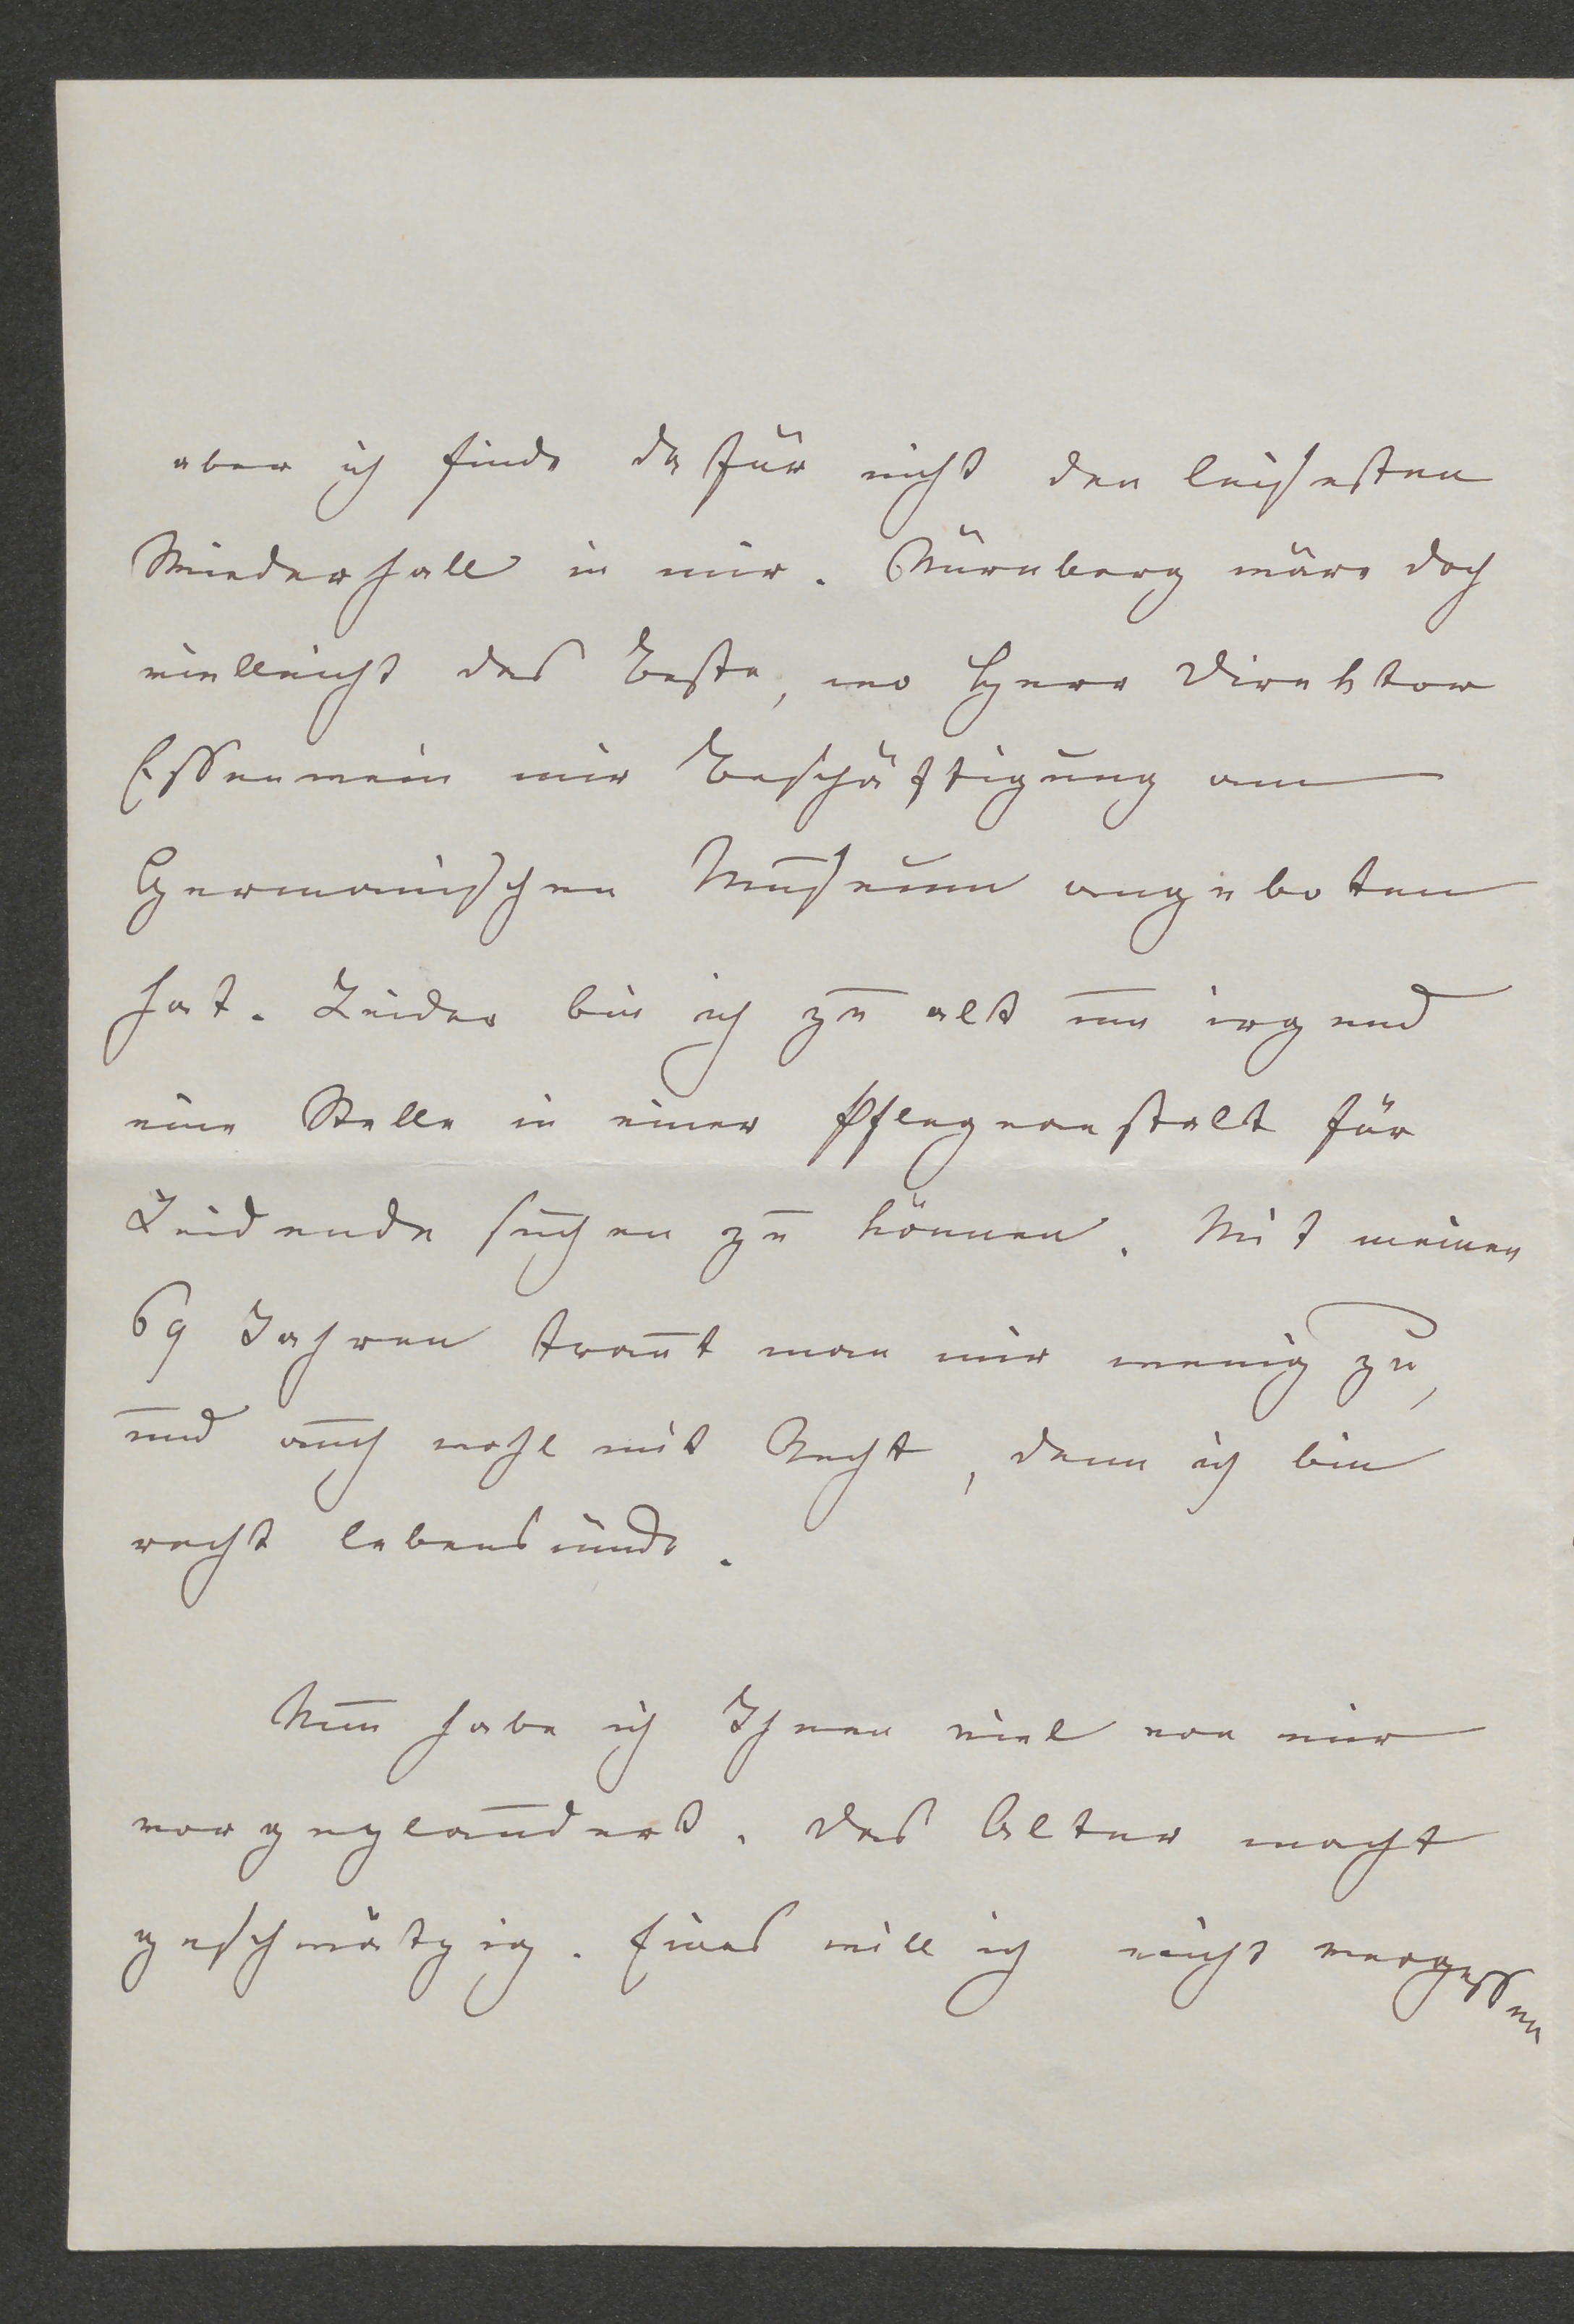 aber ich finde dafür nicht den leisesten
Wiederhall in mir. Nürnberg wäre doch
vielleicht das Beste, wo Herr Direktor
Essenwein mir Beschäftigung am
Germanischen Museum angeboten
hat. Leider bin ich zu alt um irgend
eine Stelle in einer Pflegeanstalt für
Leidende suchen zu können. Mit meinen
69 Jahren traut man mir wenig zu,
und auch wohl mit Recht, denn ich bin
recht lebensmüde.
Nun habe ich Ihnen viel von mir
vorgeplaudert. Das Alter macht
geschwätzig. Eines will ich nicht vergessen